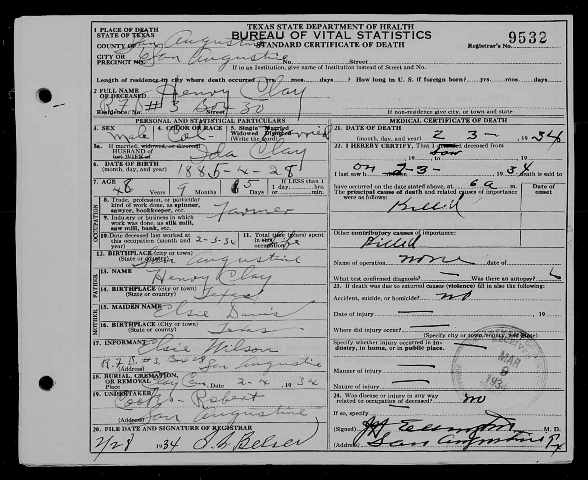 TEXAS STATE DEPARTMENT OF HEALTH
BUREAU OF VITAL STATISTICS
STANDARD CERTIFICATE OF DEATH
Registrar's No. 9532
1 PLACE OF DEATH
STATE OF TEXAS
COUNTY OF San Augustine
CITY OR PRECINCT NO. San Augustine No. Street
If in an Institution, give name of Institution instead of Street and No.
Length of residence in city where death occurred yrs. mos. days. How long in U. S. if foreign born? yrs. mos. days
2 FULL NAME OF DECEASED Henry Clay
Residence: No. R.F.D. #3 Box 30 Street
If non-residence give city, or town and state
PERSONAL AND STATISTICAL PARTICULARS
3. SEX male 4. COLOR OR RACE Col 5. Single Married Widowed Divorced (Write the word) Married
5a. If married, widowed, or divorced HUSBAND OF (or) WIFE OF Ida Clay
6. DATE OF BIRTH (month, day, and year) 1885-4-28
7. AGE 48 Years 9 Months 5 Days If LESS than 1 day hrs. min.
OCCUPATION
8. Trade, profession, or particular kind of work done, as spinner, sawyer, bookkeeper, etc. Farmer
9. Industry or business in which work was done, as silk mill, saw mill, bank, etc.
10. Date deceased last worked at this occupation (month and year) 2-3-34 11. Total time (years) spent in this occupation Life
12. BIRTHPLACE (city or town) San Augustine
(State or country)
FATHER
13. NAME Henry Clay
14. BIRTHPLACE (city or town) (State or country) Texas
MOTHER
15. MAIDEN NAME Elsie Davis
16. BIRTHPLACE (city or town) (State or country) Texas
17. INFORMANT Elsie Wilson
R.F.D. #3, Box 28 San Augustine
18. BURIAL, CREMATION, OR REMOVAL
Place Clay Cem. Date 2-4 1934
19. UNDERTAKER Robert
San Augustine
20. FILE DATE AND SIGNATURE OF REGISTRAR
2/28 1934 Belser
MEDICAL CERTIFICATE OF DEATH
21. DATE OF DEATH (month, day, and year) 2 3- 1934
22. I HEREBY CERTIFY, That I attended deceased from
Saw
on 2-3- 34
I last saw h alive on 19 death is said to
have occurred on the date stated above, at 6 a m.
The principal cause of death and related causes of importance were as follows: Date of onset
Killed
Other contributory causes of importance:
Killed
Name of operation none date of
What test confirmed diagnosis? — Was there an autopsy?
23. If death was due to external causes (violence) fill in also the following:
Accident, suicide, or homicide? no
Date of injury — 19
Where did injury occur? —
(Specify city or town, county, and State)
Specify whether injury occurred in industry, in home, or in public place.
Manner of injury —
Nature of injury —
MAR 9 193
24. Was disease or injury in any way related to occupation of deceased? no
If so, specify
(Signed) Ellington M. D.
(Address) San Augustine Tx